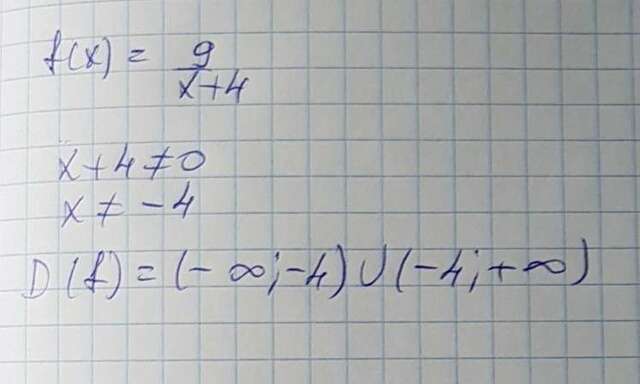 f(x) = 9/(x+4)
x+4≠0
x ≠ -4
D(f) = (-∞;-4)∪(-4;+∞)